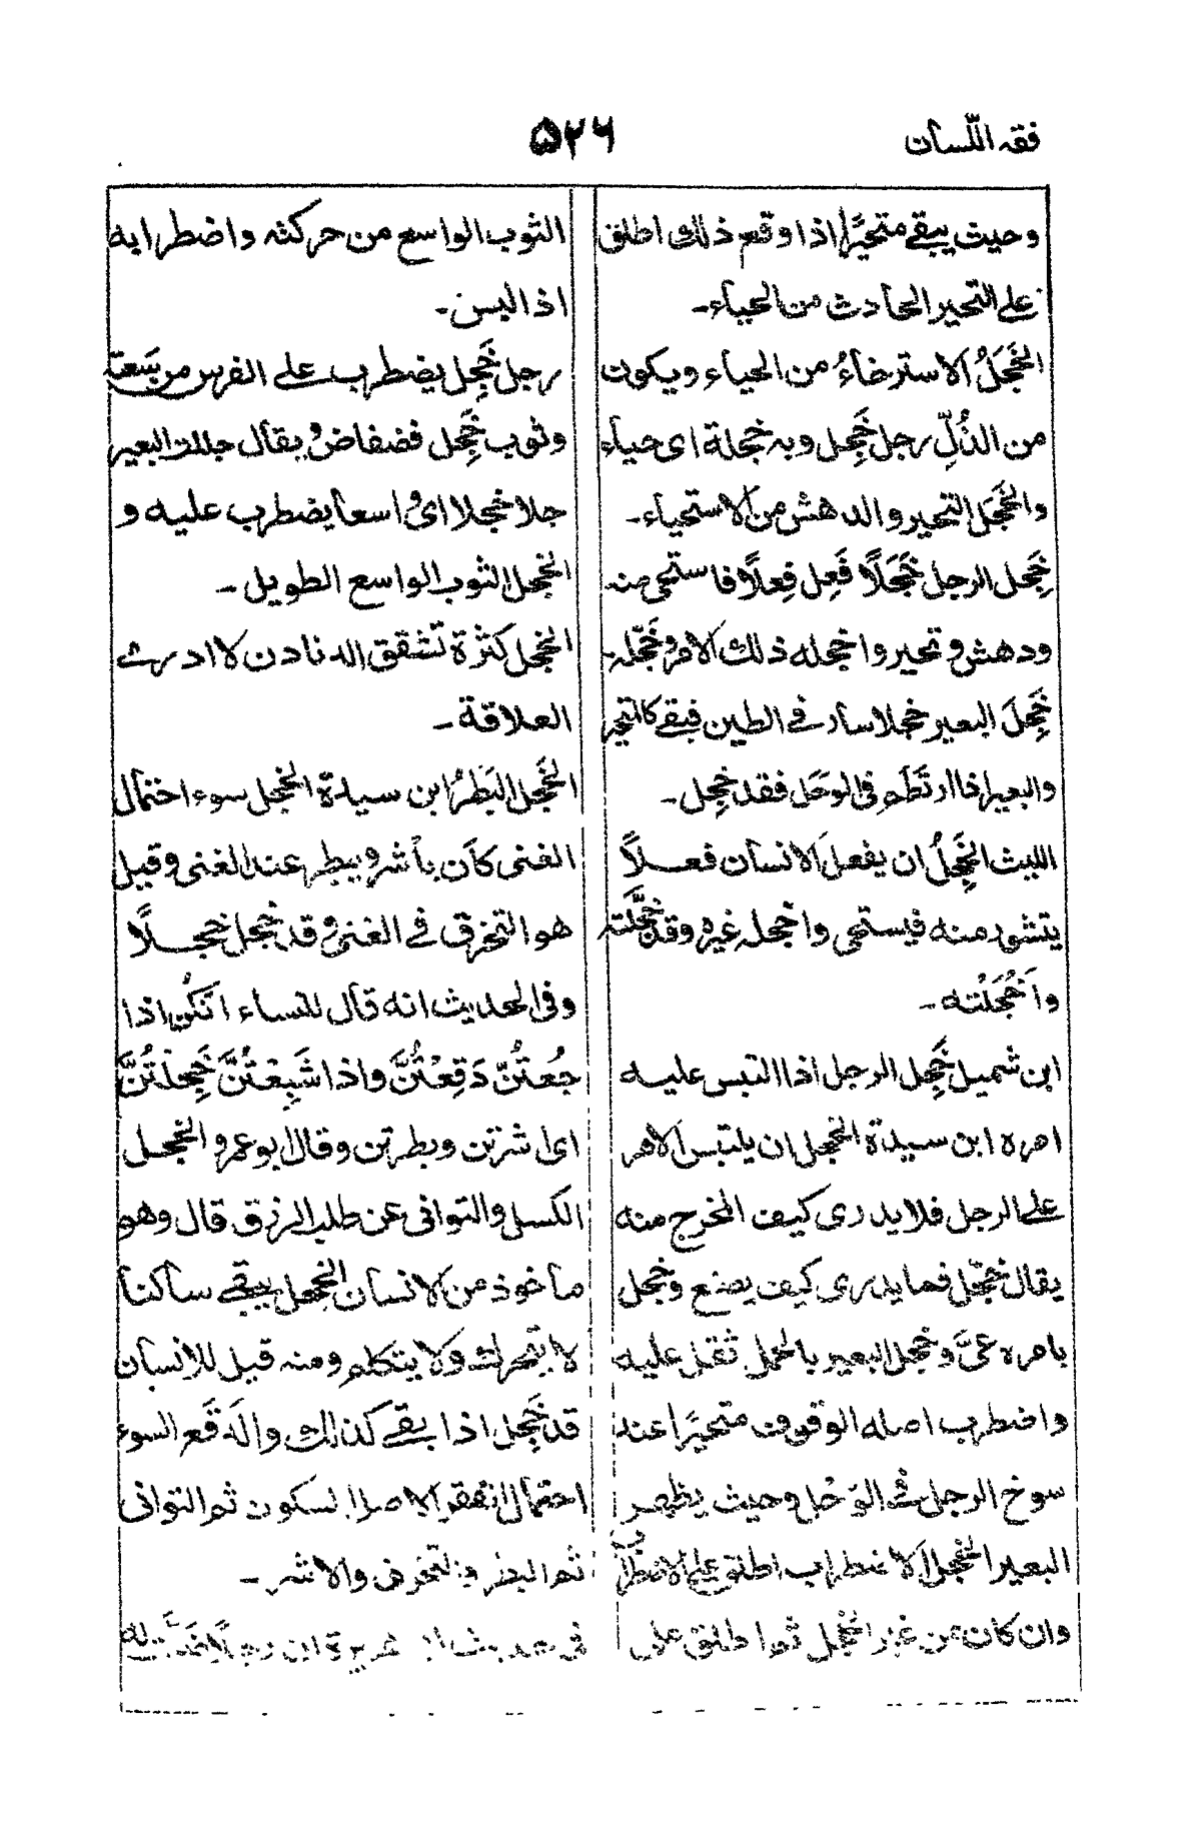 فقه اللّسان
۵۲۶
وحيث يبقے متحيّرا اذا وقع ذلك اطلق
علے التحير الحادث من الحياء۔
الخَجَلُ الاسترخاءُ من الحياء ويكون
من الذُلِّ رجل خَجِل وبه خجلة اى حياء
والخَجَل التحير والدهش من الاستحياء۔
خَجِل الرجل خَجَلًا فَعِل فِعلًا فاستحى منه
ودهش وتحير واخجله ذلك الامر وخَجّله۔
خَجِلَ البعير خجلا سار فے الطين فبقے كالمتحير
والبعير اذا ارتَطَم فى الوَحَل فقد خجِل۔
الليث الخَجِلُ ان يفعل الانسان فعلاً
يتشور منه فيستحى واخجله غيره وقد خَجَّلته
واَخْجَلْته۔
ابن شميل خَجِل الرجل اذا التبس عليه
امره ابن سيدة الخجل ان يلتبس الامر
على الرجل فلا يدرى كيف المخرج منه
يقال خَجِل فما يدرى كيف يصنع وخجل
بامره عىَّ وخجل البعير بالحمل ثقل عليه
واضطرب اصله الوقوف متحيرًا عند
سوخ الرجل فے الوَحَل وحيث يظهر
البعير الخجل الاضطراب اطلق على الاضطراب
وان كان من غير الخجل ثم اطلق على
الثوب الواسع من حركته واضطرابه
اذا لبس۔
رجل خَجِل يضطرب على الفرس من سَعته
وثوب خَجِل فضفاض ويقال جللت البعير
جلا خجلا اى واسعا يضطرب عليه و
الخجل الثوب الواسع الطويل۔
الخجل كثرة تشقق الدنادن لا ادرى
العلاقة۔
الخَجَل البَطَرُ ابن سيدة الخجل سوء احتمال
الغنى كان يأشر ويبطر عند الغنى وقيل
هو التخرق فے الغنى وقد خجل خجلًا
وفى الحديث انه قال للنساء انكُن اذا
جُعتُنّ دَقِعْتُنَّ واذا شَبِعْتُنَّ خَجِلتُنَّ
اى اشرتن وبطرتن وقال ابو عمرو الخجل
الكسل والتوانى عن طلب الرزق قال وهو
مأخوذ من الانسان الخجل يبقے ساكنا
لا يتحرك ولا يتكلم ومنه قيل للانسان
قد خَجِل اذا بقے كذلك والدَقَع السوء
احتمال الفقر الاصل السكون ثم التوانى
ثم البطر والتخرق والاشر۔
فى حديث ابى هريرة ان رجلًا